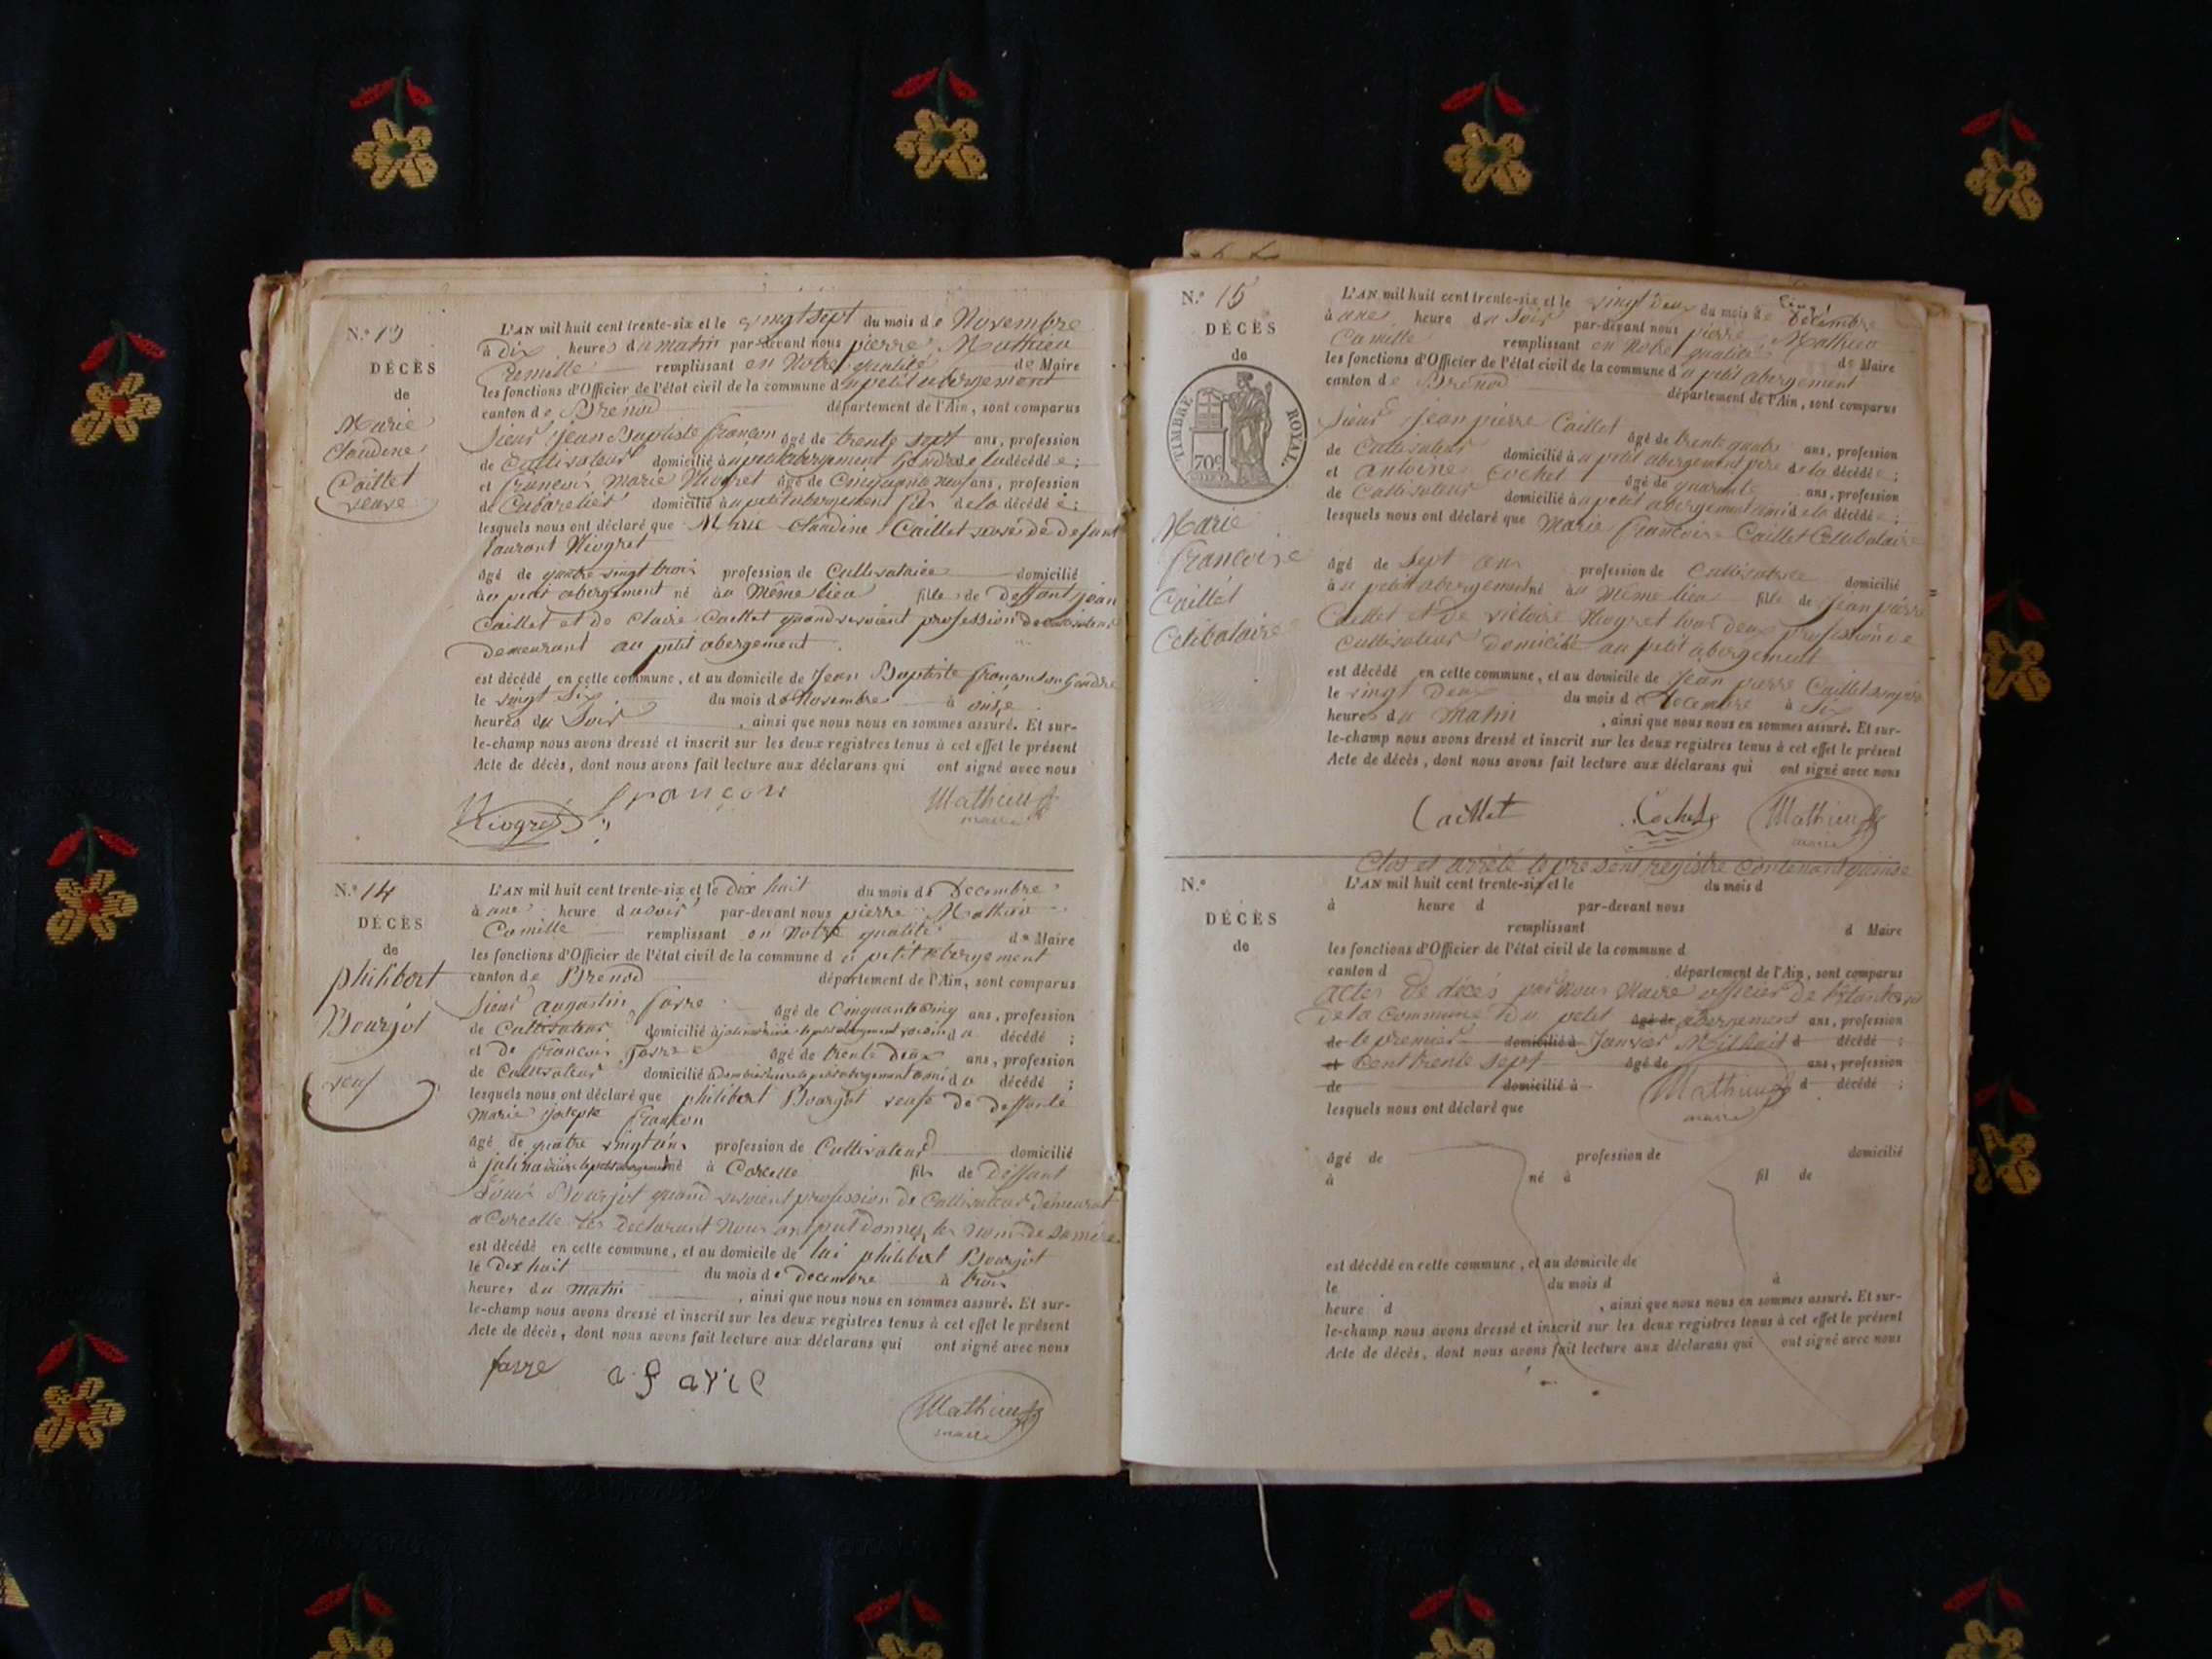 N.º 13
DÉCÈS
de
Marie
Claudine
Caillet
veuve
L'AN mil huit cent trente-six et le vingt sept du mois de Novembre
à dix heures du matin par-devant nous pierre Mathieu
Camille remplissant en Notre qualité de Maire
les fonctions d'Officier de l'état civil de la commune du petit abergement
canton de Brenod département de l'Ain, sont comparus
Sieur jean Baptiste françon âgé de trente sept ans, profession
de Cultivateur domicilié au petit abergement Gendre de la décédée;
et françois Marie Niogret âgé de Cinquante neuf ans, profession
de Cabaretier domicilié au petit abergement fils de la décédée;
lesquels nous ont déclaré que Marie Claudine Caillet veuve de defunt
laurent Niogret
âgé de quatre vingt trois profession de Cultivatrice domicilié
au petit abergement né au Même lieu fille de deffunt jean
Caillet et de Claire Caillet quand vivoient profession de cultivateur
demeurant au petit abergement
est décédé en cette commune, et au domicile de Jean Baptiste françon son Gendre
le vingt Six du mois de Novembre à onze
heures du Soir, ainsi que nous nous en sommes assuré. Et sur-
le-champ nous avons dressé et inscrit sur les deux registres tenus à cet effet le présent
Acte de décès, dont nous avons fait lecture aux déclarans qui ont signé avec nous
Niogret françon Mathieu
maire
N.º 14
DÉCÈS
de
philibert
Bourjot
veuf
L'AN mil huit cent trente-six et le Dix huit du mois de Decembre
à une heure du soir par-devant nous pierre Mathieu
Camille remplissant en Notre qualité de Maire
les fonctions d'Officier de l'état civil de la commune du petit abergement
canton de Brenod département de l'Ain, sont comparus
Sieur augustin favre âgé de Cinquante Cinq ans, profession
de Cultivateur domicilié à petit abergement voisin du décédé;
et de françois favre âgé de trente deux ans, profession
de Cultivateur domicilié à petit abergement ami du décédé;
lesquels nous ont déclaré que philibert Bourjot veuf de deffunte
Marie joseph françon
âgé de quatre vingt un profession de Cultivateur domicilié
à petit abergement né à Corcelle fils de deffunt
Louis Bourjot quand vivoient profession de Cultivateur demeurant
a Corcelle les declarant Nous ont put donner les Nom de Sa mère
est décédé en cette commune, et au domicile de lui philibert Bourjot
le Dix huit du mois de decembre à trois
heures du Matin, ainsi que nous nous en sommes assuré. Et sur-
le-champ nous avons dressé et inscrit sur les deux registres tenus à cet effet le présent
Acte de décès, dont nous avons fait lecture aux déclarans qui ont signé avec nous
favre a favre
Mathieu
maire
N.º 15
DÉCÈS
de
TIMBRE ROYAL.
70 c
Marie
françoise
Caillet
Celibataire
L'AN mil huit cent trente-six et le vingt deux du mois de Décembre
à une heure du Soir par-devant nous pierre Mathieu
Camille remplissant en Notre qualité de Maire
les fonctions d'Officier de l'état civil de la commune du petit abergement
canton de Brenod département de l'Ain, sont comparus
Sieur jean pierre Caillet âgé de trente quatre ans, profession
de Cultivateur domicilié au petit abergement père de la décédée;
et antoine Cochet âgé de quarante ans, profession
de Cultivateur domicilié au petit abergement ami de la décédée;
lesquels nous ont déclaré que Marie françoise Caillet Celibataire
âgé de Sept ans profession de Cultivatrice domicilié
au petit abergement né au Même lieu fille de Jean pierre
Caillet et de victoire Niogret tous deux profession de
Cultivateur domicilié au petit abergement
est décédé en cette commune, et au domicile de Jean pierre Caillet son père
le vingt deux du mois de Decembre à Six
heures du Matin, ainsi que nous nous en sommes assuré. Et sur-
le-champ nous avons dressé et inscrit sur les deux registres tenus à cet effet le présent
Acte de décès, dont nous avons fait lecture aux déclarans qui ont signé avec nous
Caillet Cochet Mathieu
maire
Clos et arrêté le present registre contenant quinse
N.º
DÉCÈS
de
L'AN mil huit cent trente-six et le du mois d
à heure d par-devant nous
remplissant d Maire
les fonctions d'Officier de l'état civil de la commune d
canton d département de l'Ain, sont comparus
actes de décés par Nous Maire officier de l'état civil
de la commune du petit âgé de abergement ans, profession
de le premier domicilié à Janvier Mil huit d décédé;
et Cent trente Sept âgé de ans, profession
de domicilié à d décédé;
Mathieu
maire
lesquels nous ont déclaré que
âgé de profession de domicilié
à né à fil de
est décédé en cette commune, et au domicile de
le du mois d à
heure d, ainsi que nous nous en sommes assuré. Et sur-
le-champ nous avons dressé et inscrit sur les deux registres tenus à cet effet le présent
Acte de décès, dont nous avons fait lecture aux déclarans qui ont signé avec nous